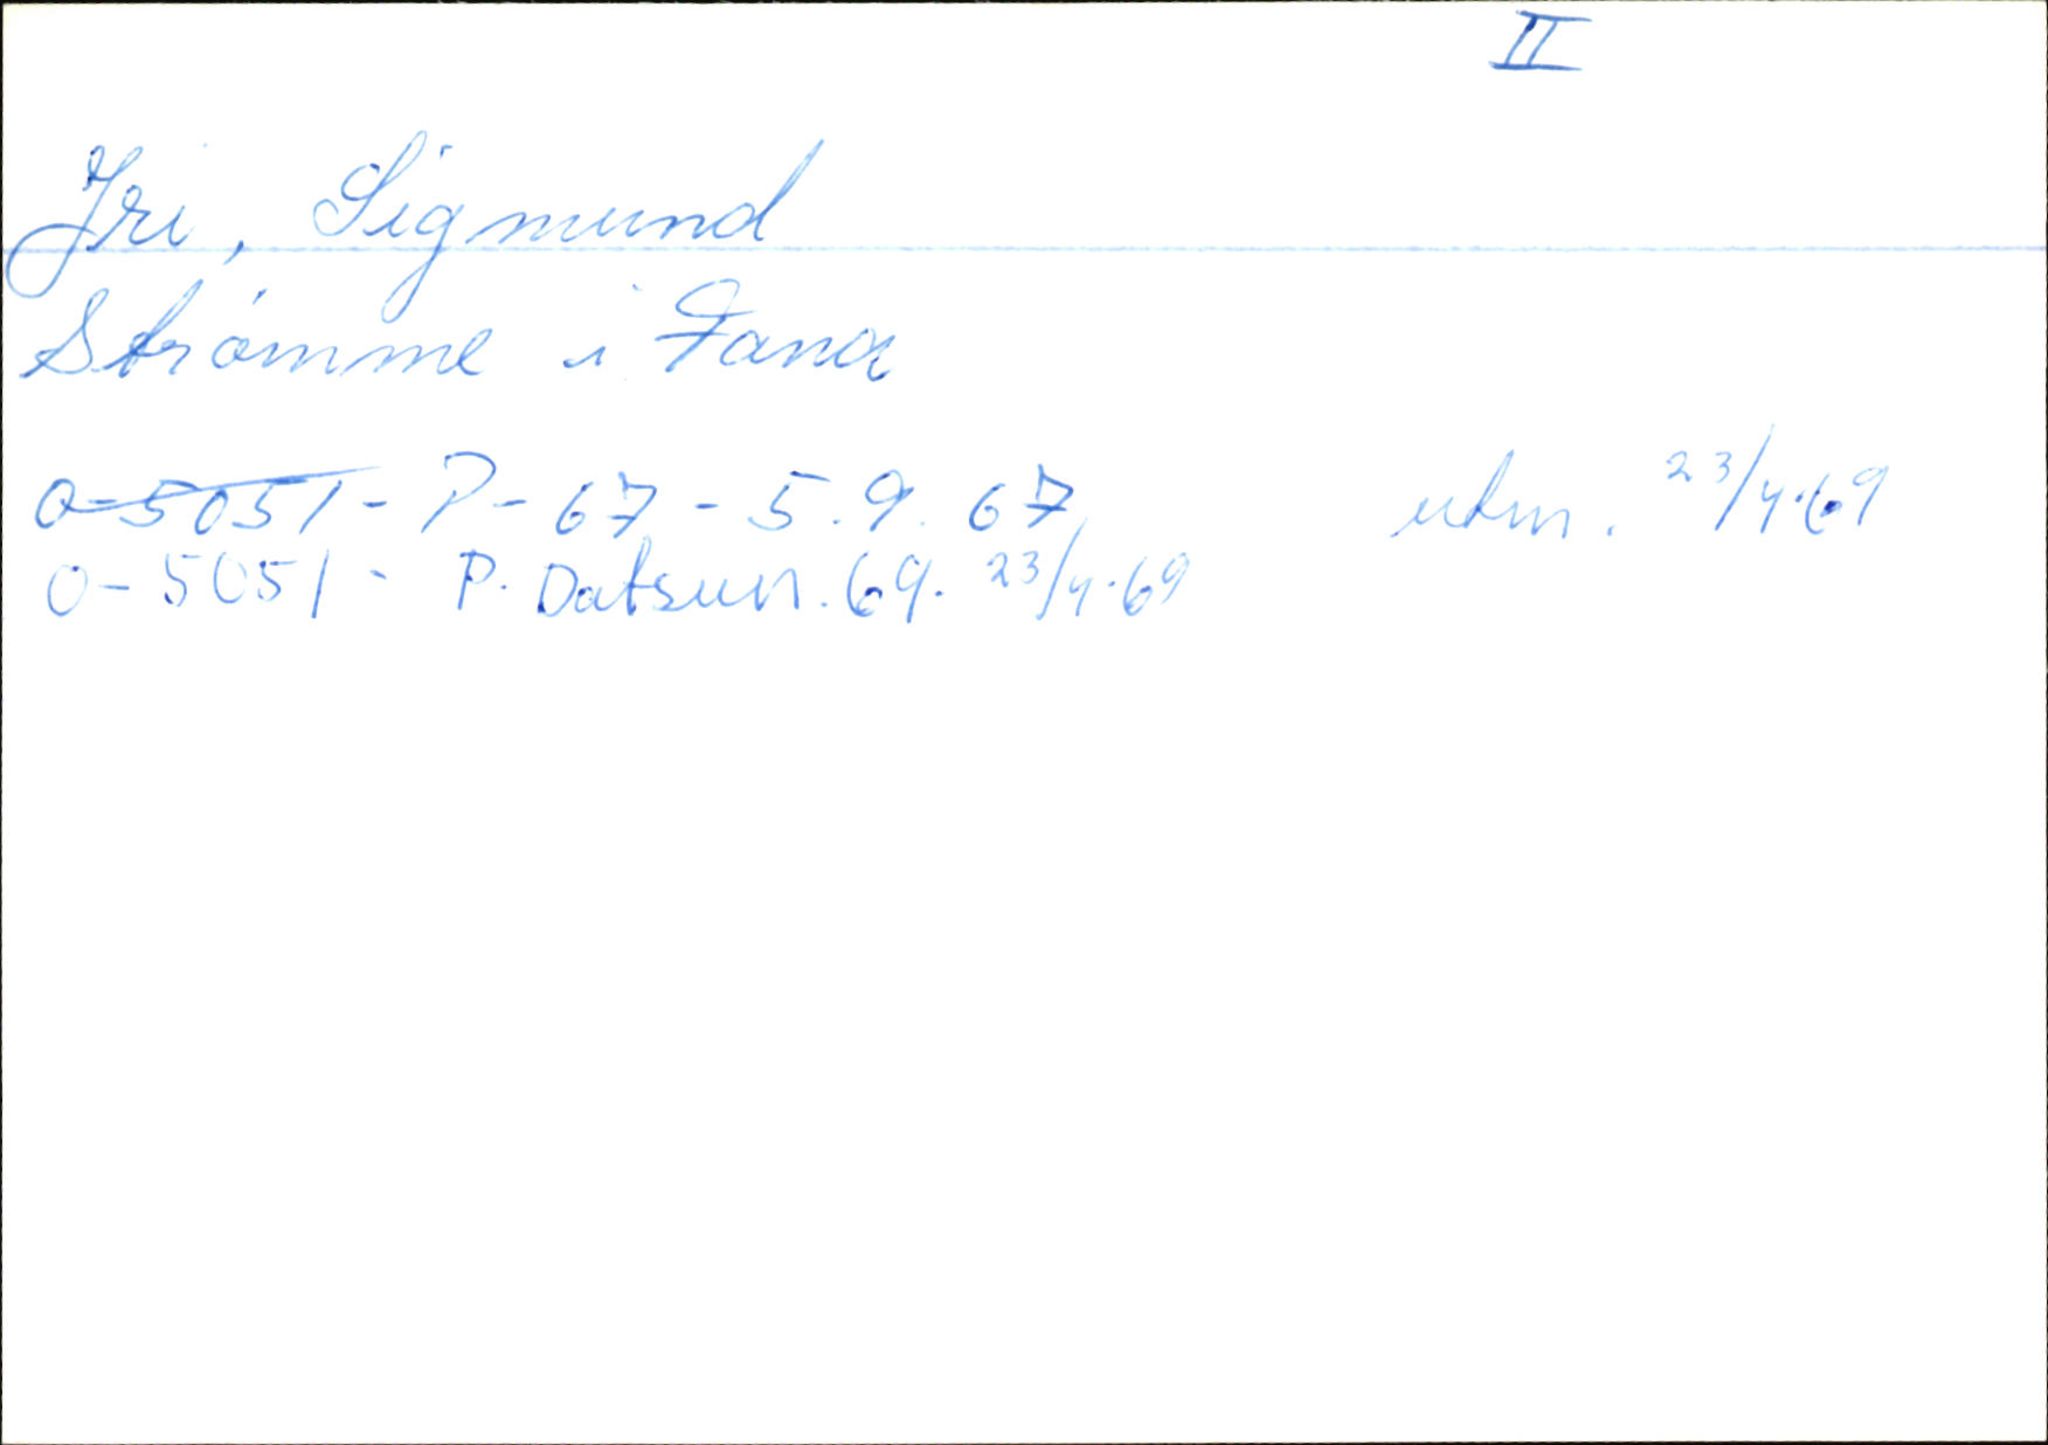 II
Iri, Sigmund
Strømme i Fana
O-5051 - P - 67 - 5.9.67 utm. 23/4.69
O-5051 - P. Datsun. 69. 23/4.69